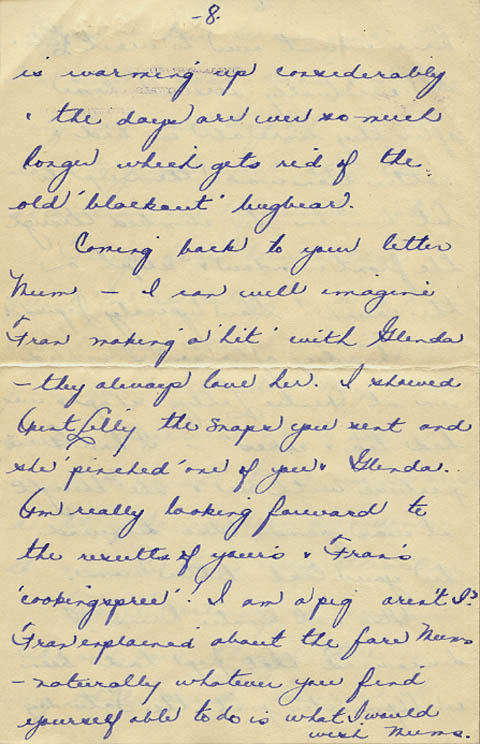 -8.
is warming up considerably
& the days are ever so much
longer which gets rid of the
old 'blackout' bugbear.
Coming back to your letter
Mum — I can well imagine
Fran making a 'hit' with Glenda
— they always love her. I showed
Aunt Lilly the snaps you sent and
she 'pinched' one of you & Glenda.
I'm really looking forward to
the results of yours & Fran's
'cooking spree'! I am a pig aren't I?
Fran explained about the fare Mums
— naturally whatever you find
yourself able to do is what I would
wish Mums.